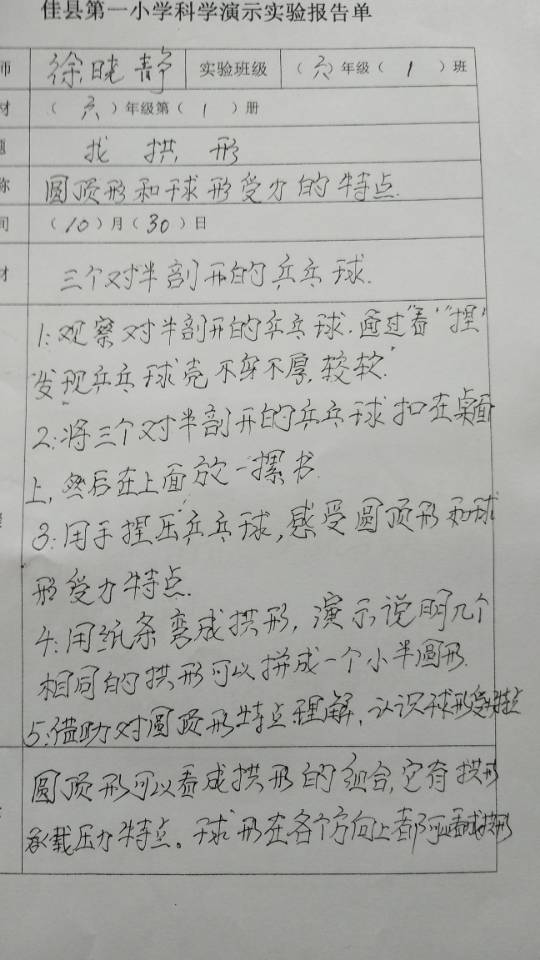 佳县第一小学科学演示实验报告单
师 徐晓静 实验班级 （六）年级（1）班
材 （六）年级第（1）册
题 找拱形
称 圆顶形和球形受力的特点.
间 （10）月（30）日
材 三个对半剖开的乒乓球.
1:观察对半剖开的乒乓球.通过"看""捏"
发现乒乓球壳不身不厚,较软.
2:将三个对半剖开的乒乓球扣在桌面
上,然后在上面放一摞书.
3:用手捏压乒乓球,感受圆顶形和球
形受力特点.
4:用纸条弯成拱形,演示说明几个
相同的拱形可以拼成一个小半圆形.
5:借助对圆顶形特点理解,认识球形受力特点
圆顶形可以看成拱形的组合,它有拱形
承载压力特点。球形在各个方向上都可以看成拱形